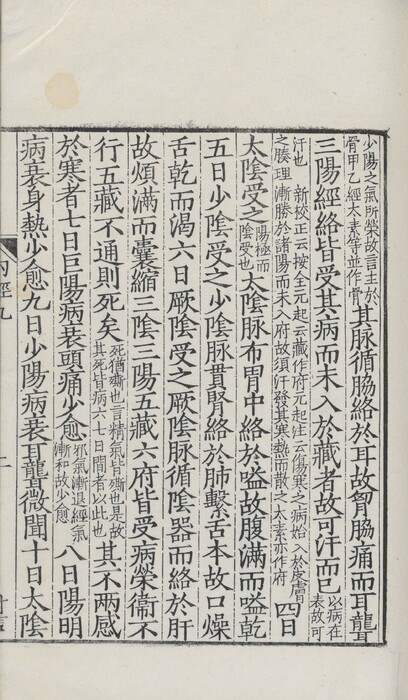 少陽之氣所榮故言主於
骨甲乙經太素等並作骨
其脉循脇絡於耳故胷脇痛而耳聾
三陽經絡皆受其病而未入於藏者故可汗而已
以病在
表故可
汗也 新校正云按全元起云藏作府元起注云傷寒之病始入於皮膚
之腠理漸勝於諸陽而未入府故須汗發其寒熱而散之太素亦作府
四日
太陰受之
陽極而
陰受也
太陰脉布胃中絡於嗌故腹滿而嗌乾
五日少陰受之少陰脉貫腎絡於肺繫舌本故口燥
舌乾而渴六日厥陰受之厥陰脉循陰器而絡於肝
故煩滿而囊縮三陰三陽五藏六府皆受病榮衞不
行五藏不通則死矣
死猶𣩠也言精氣皆𣩠也是故
其死皆病六七日間者以此也
其不兩感
於寒者七日巨陽病衰頭痛少愈
邪氣漸退經氣
漸和故少愈
八日陽明
病衰身熱少愈九日少陽病衰耳聾微聞十日太陰
内經九